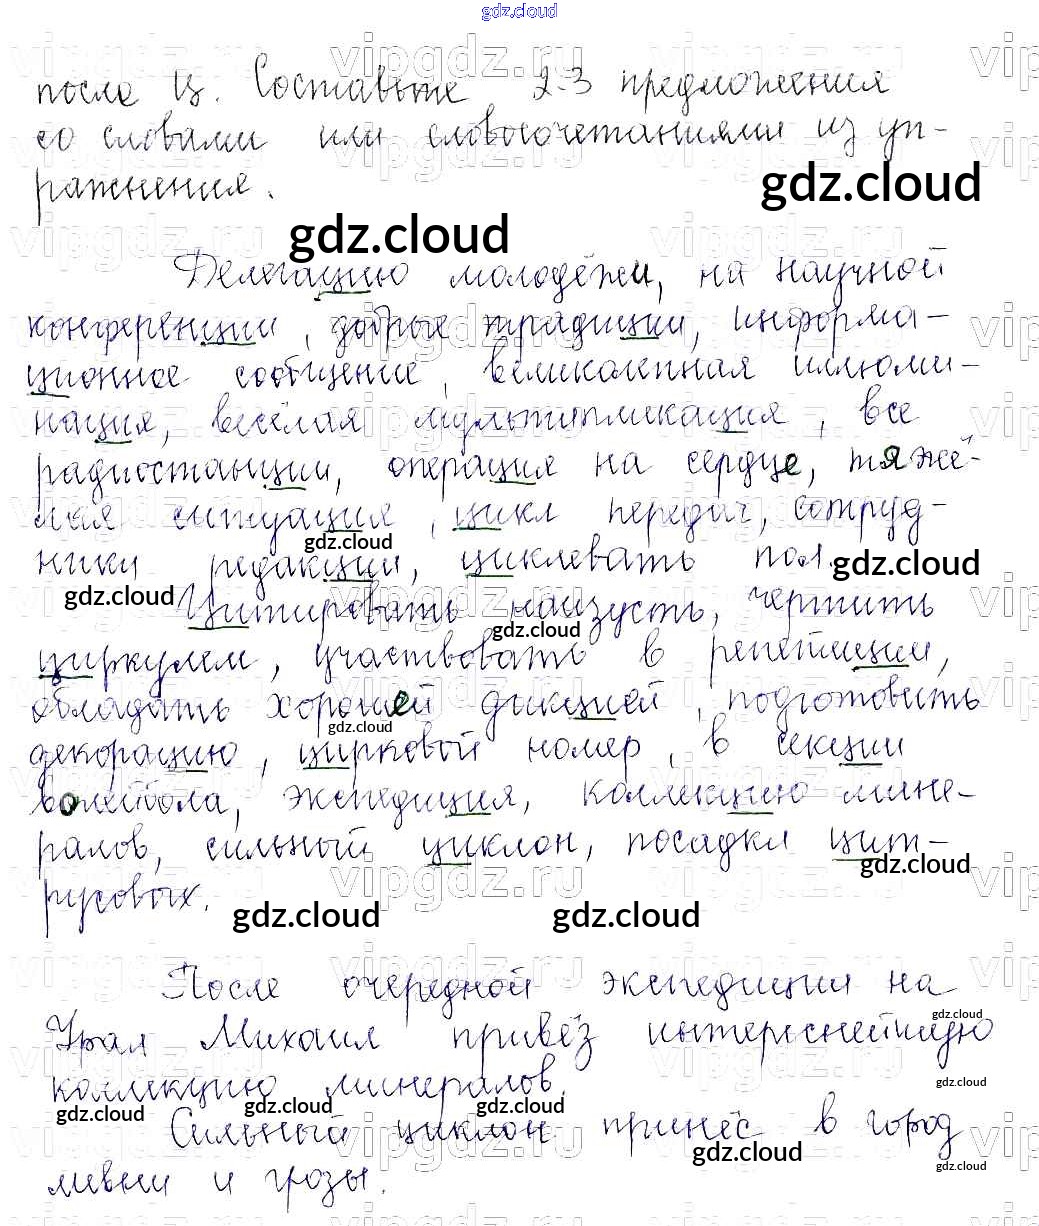 gdz.cloud
после Ц. Составьте 2-3 предложения
со словами или словосочетаниями из уп-
ражнения.
gdz.cloud
gdz.cloud
Делегацию молодёжи, на научной
конференции, добрые традиции, информа-
ционное сообщение, великолепная иллюми-
нация, весёлая мультипликация, все
радиостанции, операция на сердце, тяжё-
лая ситуация, цикл передач, сотруд-
gdz.cloud
ники редакции, циклевать пол.
gdz.cloud
gdz.cloud
Цитировать наизусть, чертить
gdz.cloud
циркулем, участвовать в репетиции,
обладать хорошей дикцией, подготовить
gdz.cloud
декорацию, цирковой номер, в секции
волейбола, экспедиция, коллекцию мине-
ралов, сильный циклон, посадки цит-
gdz.cloud
русовых.
gdz.cloud gdz.cloud
После очередной экспедиции на
gdz.cloud
Урал Михаил привёз интереснейшую
коллекцию минералов.
gdz.cloud
gdz.cloud gdz.cloud gdz.cloud
Сильный циклон принёс в город
gdz.cloud
gdz.cloud
ливни и грозы.
vipgdz.ru